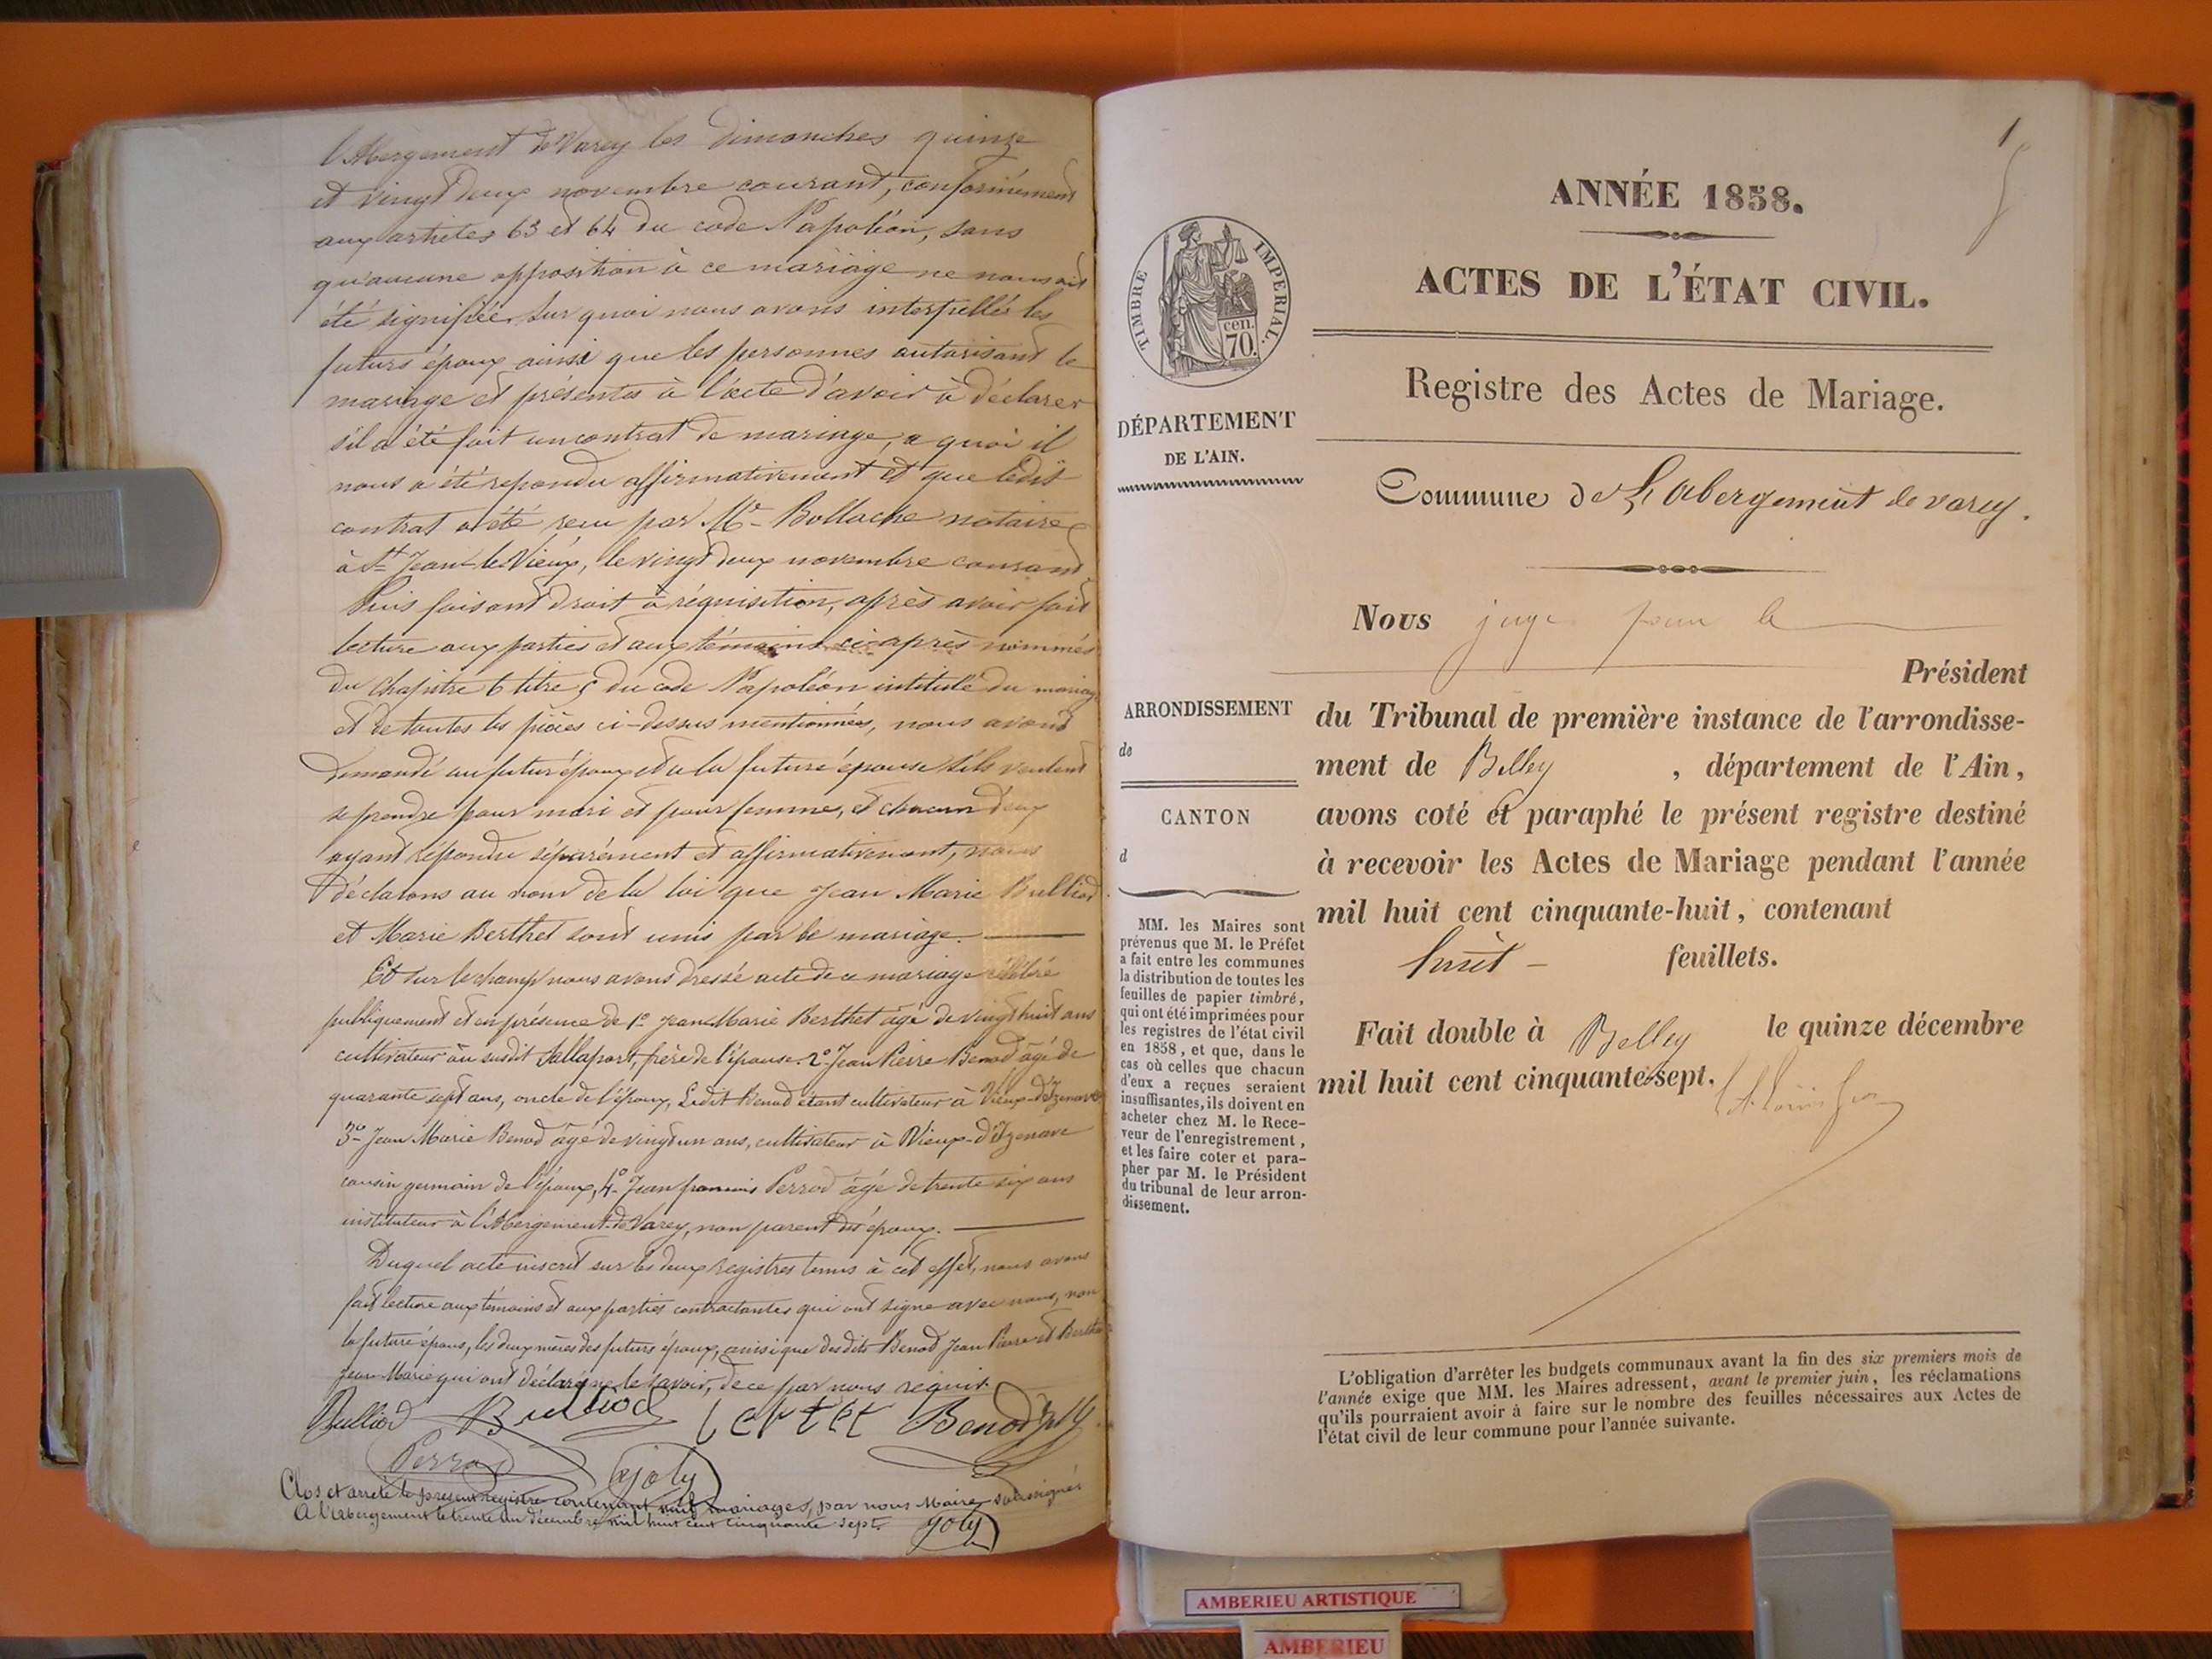 l'Abergement de Varey les dimanches quinze
et vingt deux novembre courant, conformément
aux articles 63 et 64 du code Napoléon, sans
qu'aucune opposition à ce mariage ne nous ait
été signifiée. Sur quoi nous avons interpellés les
futurs époux ainsi que les personnes autorisant le
mariage et présentes à l'acte d'avoir à déclarer
s'il a été fait un contrat de mariage, a quoi il
nous a été répondu affirmativement et que ledit
contrat a été reçu par Me Bollache notaire
à St Jean-le-Vieux, le vingt deux novembre courant
Puis faisant droit à réquisition, après avoir fait
lecture aux parties et aux témoins ci-après nommés
du chapitre 6 titre 5 du code Napoléon intitulé du mariage
et de toutes les pièces ci-dessus mentionnées, nous avons
demandé au futur époux et a la future épouse s'ils veulent
se prendre pour mari et pour femme, et chacun d'eux
ayant répondu séparément et affirmativement, nous
déclarons au nom de la loi que Jean Marie Bulliod
et Marie Berthet sont unis par le mariage.
Et sur le champ nous avons dressé acte de ce mariage célébré
publiquement et en présence de 1° Jean Marie Berthet âgé de vingt huit ans
cultivateur au susdit Sallaport, frère de l'épouse. 2° Jean Pierre Benod âgé de
quarante sept ans, oncle de l'époux, Ledit Benod étant cultivateur à Vieux-d'Izenave
3° Jean Marie Benod âgé de vingt un ans, cultivateur à Vieux-d'Izenave
cousin germain de l'époux, 4° Jean françois Perrod âgé de trente six ans
instituteur à l'Abergement-de-Varey, non parent des époux.
Duquel acte inscrit sur les deux registres tenus à cet effet, nous avons
fait lecture aux témoins et aux parties contractantes qui ont signé avec nous, non
la future épouse, les deux mères des futurs époux, ainsi que des dits Benod Jean Pierre et Berthet
Jean-Marie qui ont déclaré ne le savoir, de ce par nous requis.
Bulliod Bulliod Benod
Perrod Joly
Clos et arrêté le présent registre contenant neuf mariages, par nous Maire soussigné
A l'Abergement le trente un décembre mil huit cent cinquante sept. Joly
1
ANNÉE 1858.
ACTES DE L'ÉTAT CIVIL.
TIMBRE IMPERIAL.
cen.
70.
Registre des Actes de Mariage.
DÉPARTEMENT
DE L'AIN.
Commune de L'abergement de varey.
Nous juge pour le
Président
ARRONDISSEMENT
de
du Tribunal de première instance de l'arrondisse-
ment de Belley , département de l'Ain,
CANTON
d
avons coté et paraphé le présent registre destiné
à recevoir les Actes de Mariage pendant l'année
mil huit cent cinquante-huit, contenant
huit feuillets.
Fait double à Belley le quinze décembre
mil huit cent cinquante-sept.
MM. les Maires sont
prévenus que M. le Préfet
a fait entre les communes
la distribution de toutes les
feuilles de papier timbré,
qui ont été imprimées pour
les registres de l'état civil
en 1858, et que, dans le
cas où celles que chacun
d'eux a reçues seraient
insuffisantes, ils doivent en
acheter chez M. le Rece-
veur de l'enregistrement,
et les faire coter et para-
pher par M. le Président
du tribunal de leur arron-
dissement.
L'obligation d'arrêter les budgets communaux avant la fin des six premiers mois de
l'année exige que MM. les Maires adressent, avant le premier juin, les réclamations
qu'ils pourraient avoir à faire sur le nombre des feuilles nécessaires aux Actes de
l'état civil de leur commune pour l'année suivante.
AMBERIEU ARTISTIQUE
AMBERIEU